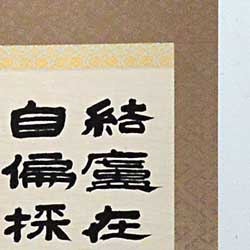 結廬在
自偏採